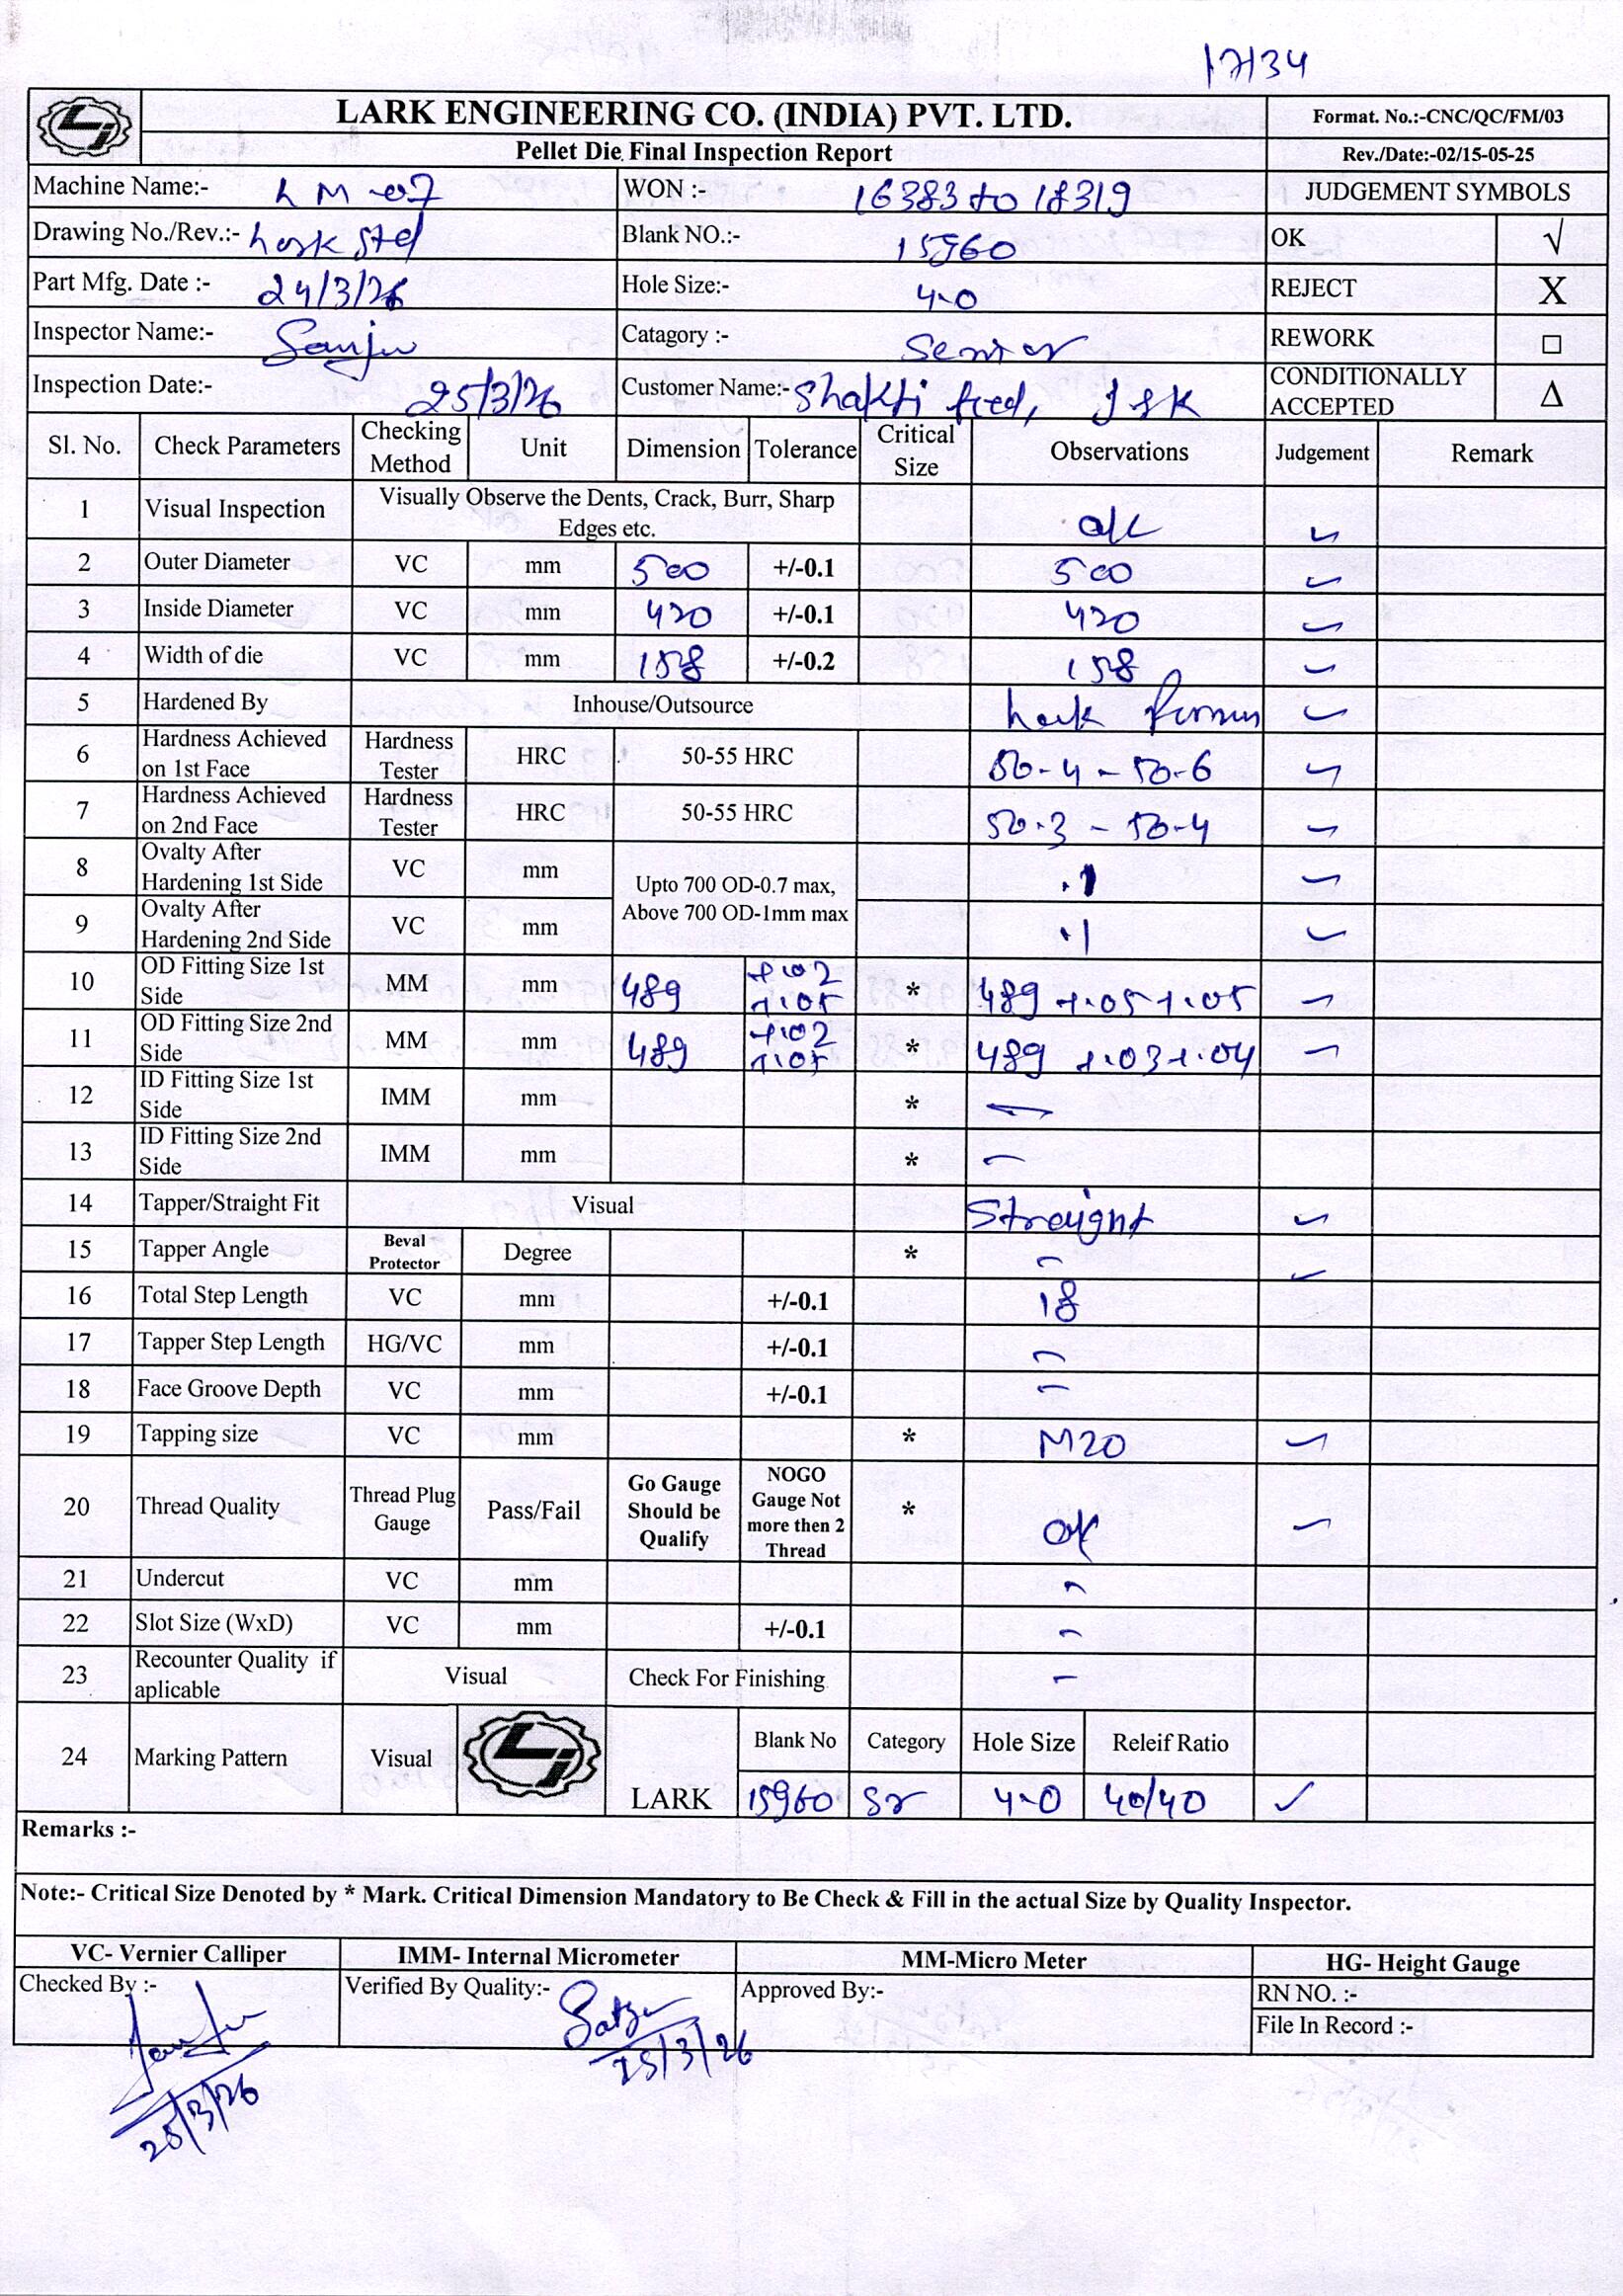 17134
LARK ENGINEERING CO. (INDIA) PVT. LTD. Format. No.:-CNC/QC/FM/03
Pellet Die Final Inspection Report Rev./Date:-02/15-05-25
Machine Name:- LM-07 WON :- 16383 to 18319 JUDGEMENT SYMBOLS
Drawing No./Rev.:- Lark Std Blank NO.:- 15960 OK √
Part Mfg. Date :- 24/3/26 Hole Size:- 4.0 REJECT X
Inspector Name:- Sanju Catagory :- Senior REWORK □
Inspection Date:- 25/3/26 Customer Name:- Shakti feed, J&K CONDITIONALLY ACCEPTED Δ
Sl. No. Check Parameters Checking Method Unit Dimension Tolerance Critical Size Observations Judgement Remark
1 Visual Inspection Visually Observe the Dents, Crack, Burr, Sharp Edges etc. o/k ✓
2 Outer Diameter VC mm 500 +/-0.1 500 ✓
3 Inside Diameter VC mm 420 +/-0.1 420 ✓
4 Width of die VC mm 158 +/-0.2 158 ✓
5 Hardened By Inhouse/Outsource Lark ✓
6 Hardness Achieved on 1st Face Hardness Tester HRC 50-55 HRC 50.4 - 50.6 ✓
7 Hardness Achieved on 2nd Face Hardness Tester HRC 50-55 HRC 50.3 - 50.4 ✓
8 Ovalty After Hardening 1st Side VC mm Upto 700 OD-0.7 max, Above 700 OD-1mm max .1 ✓
9 Ovalty After Hardening 2nd Side VC mm .1 ✓
10 OD Fitting Size 1st Side MM mm 489 +.02 +.05 * 489 +.05 +.05 ✓
11 OD Fitting Size 2nd Side MM mm 489 +.02 +.05 * 489 +.03 +.04 ✓
12 ID Fitting Size 1st Side IMM mm * —
13 ID Fitting Size 2nd Side IMM mm * —
14 Tapper/Straight Fit Visual Straight ✓
15 Tapper Angle Beval Protector Degree * — ✓
16 Total Step Length VC mm +/-0.1 18
17 Tapper Step Length HG/VC mm +/-0.1 —
18 Face Groove Depth VC mm +/-0.1 —
19 Tapping size VC mm * M20 ✓
20 Thread Quality Thread Plug Gauge Pass/Fail Go Gauge Should be Qualify NOGO Gauge Not more then 2 Thread * OK ✓
21 Undercut VC mm —
22 Slot Size (WxD) VC mm +/-0.1 —
23 Recounter Quality if aplicable Visual Check For Finishing —
24 Marking Pattern Visual LARK Blank No Category Hole Size Releif Ratio
15960 Sr 4.0 40/40 ✓
Remarks :-
Note:- Critical Size Denoted by * Mark. Critical Dimension Mandatory to Be Check & Fill in the actual Size by Quality Inspector.
VC- Vernier Calliper IMM- Internal Micrometer MM-Micro Meter HG- Height Gauge
Checked By :- Verified By Quality:- Approved By:- RN NO. :-
File In Record :-
Sanju 25/3/26
25/3/26